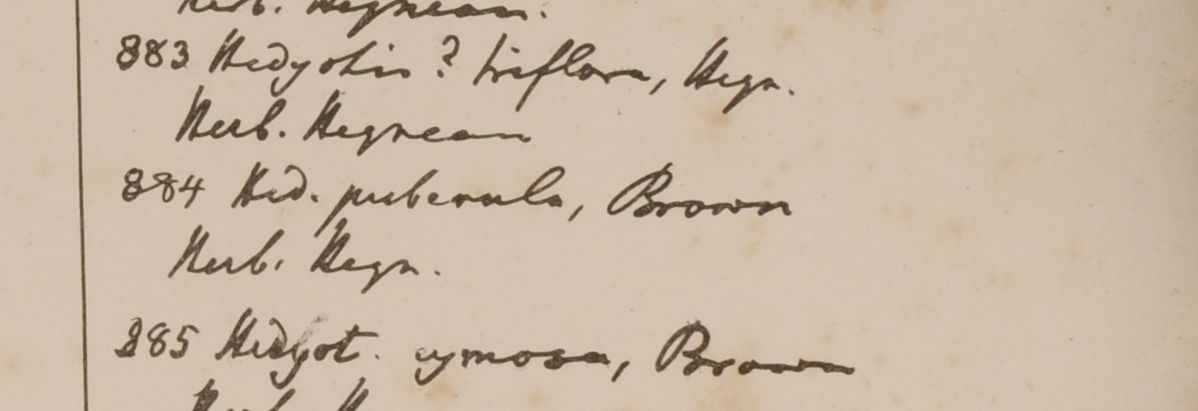 Herb. Heynean.
883 Hedyotis? triflora, Heyn.
Herb. Heynean
884 Hed. puberula, Brown
Herb. Heyn.
885 Hedyot. cymosa, Brown
Herb. H